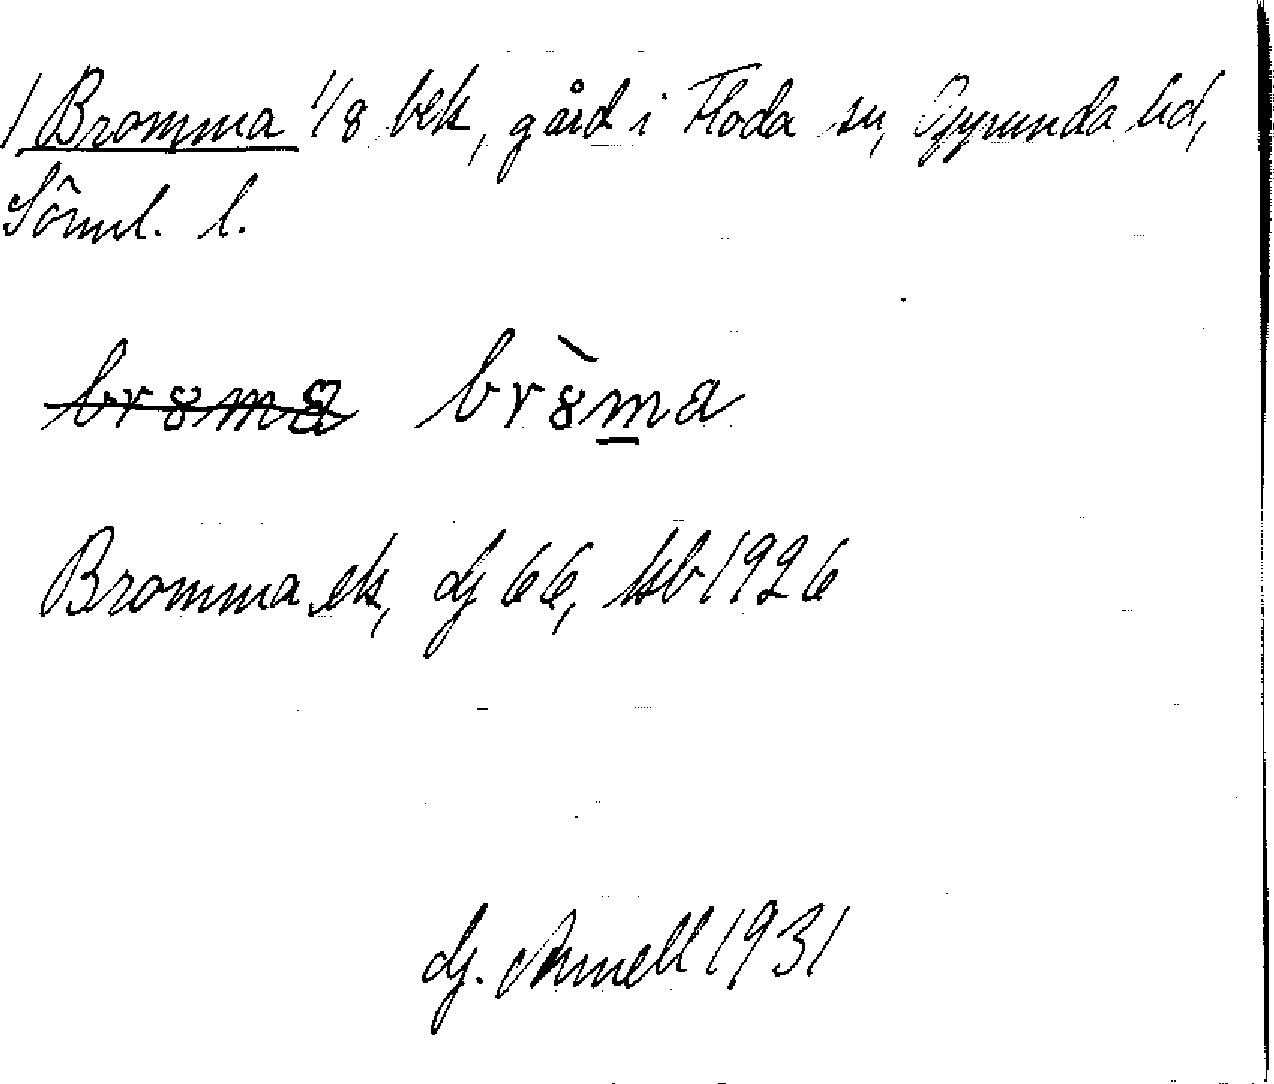 1 Bromma 1/8 bek, gård i Floda sn, Oppunda hd,
Söml. l.
br8ma br8̀m̲a
Bromma ek, dj 66, kb 1926
dj. Arnell 1931